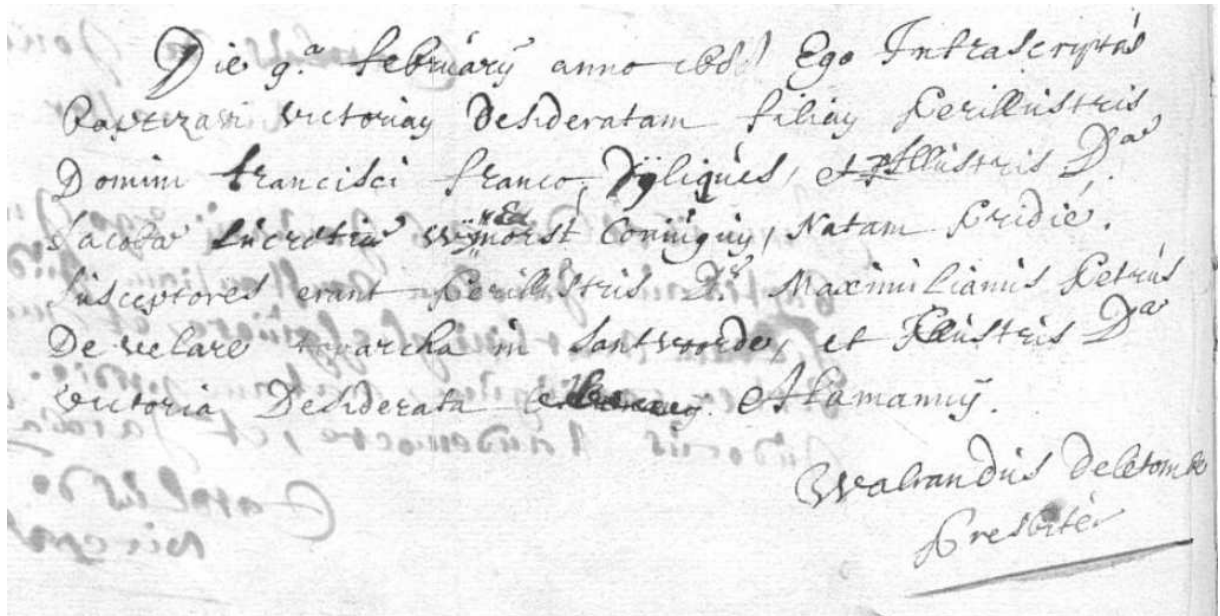 Die 9.ª februarÿ anno 168 Ego Infrascriptús
Baptizavi victoriam Desideratam filiam Perillustris
Domini francisci franco, Dÿliqúes, et Illustris Dᵃ
Jacobæ Lucretiæ Coniugum, Natam Pridié.
Susceptores erant Perillustris Dˢ Maximilianus Petrús
De velare in Santvoorde, et Illustris Dᵃ
victoria Desiderata Alamannÿ.
Walrandús Deletombe
Presbiter